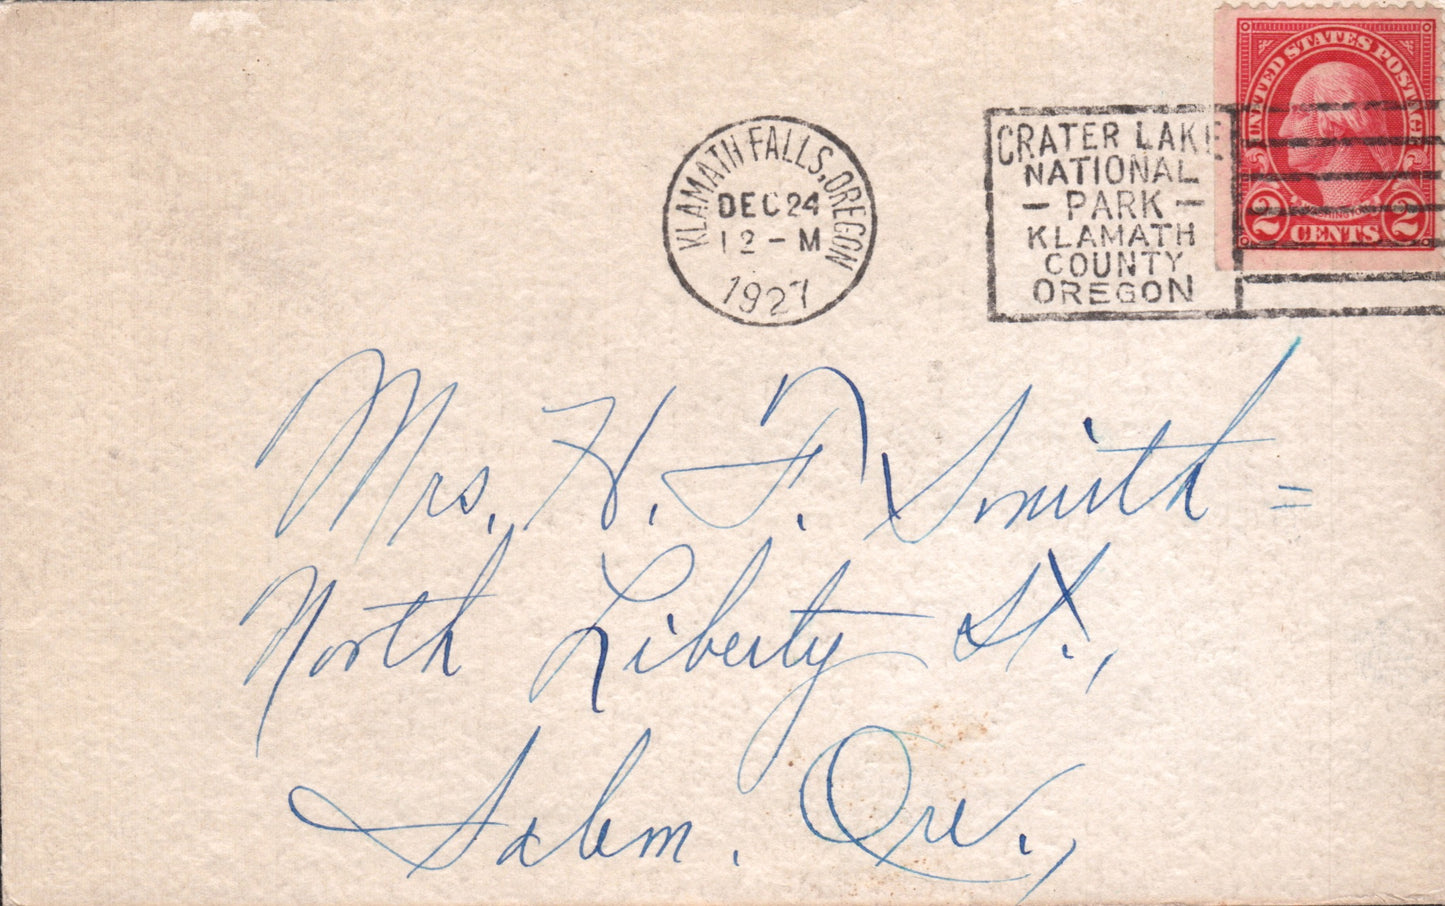 UNITED STATES POSTAGE
WASHINGTON
2 CENTS 2
KLAMATH FALLS, OREGON
DEC 24
12 - M
1927
CRATER LAKE
NATIONAL
- PARK -
KLAMATH
COUNTY
OREGON
Mrs. H. F. Smith =
North Liberty St.,
Salem, Ore.,